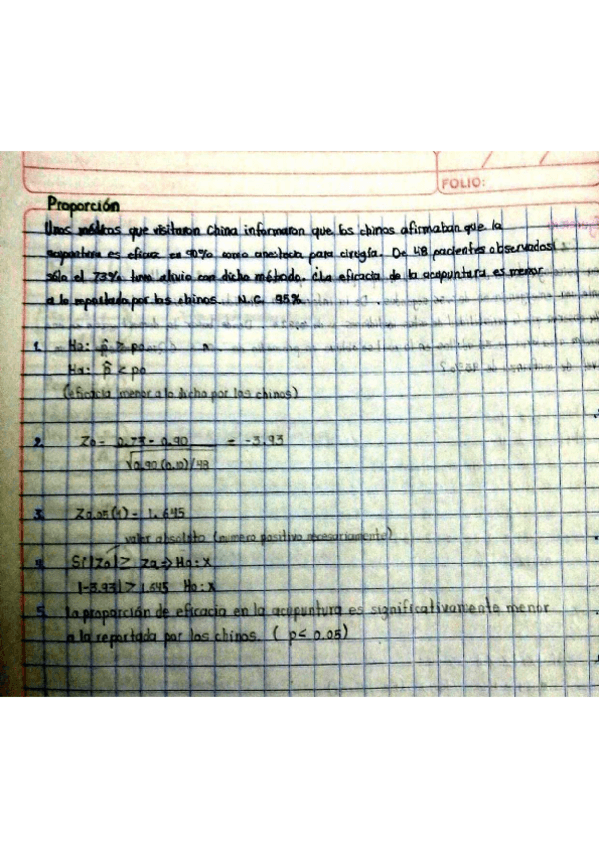 FOLIO:
Proporción
Unos médicos que visitaron China informaron que los chinos afirmaban que la
acapuntura es eficaz en 90% como anestecia para cirugía. De 48 pacientes observados
sólo el 73% tuvo alivio con dicho método. ¿La eficacia de la acapuntura es menor
a lo reportada por los chinos. N.C. 95%
1. Ho: p̂ ≥ po
Ha: p̂ < po
(eficacia menor a lo dicho por los chinos)
2. Zo = 0.73 - 0.90 / √0.90(0.10)/48 = -3.93
3. Z0.05(1) = 1.645
valor absoluto (numero positivo necesariamente)
4. Si |Zo| > Zα => Ho: x
|-3.93| > 1.645 Ho: x
5. La proporción de eficacia en la acupuntura es significativamente menor
a la reportada por los chinos. ( p< 0.05)